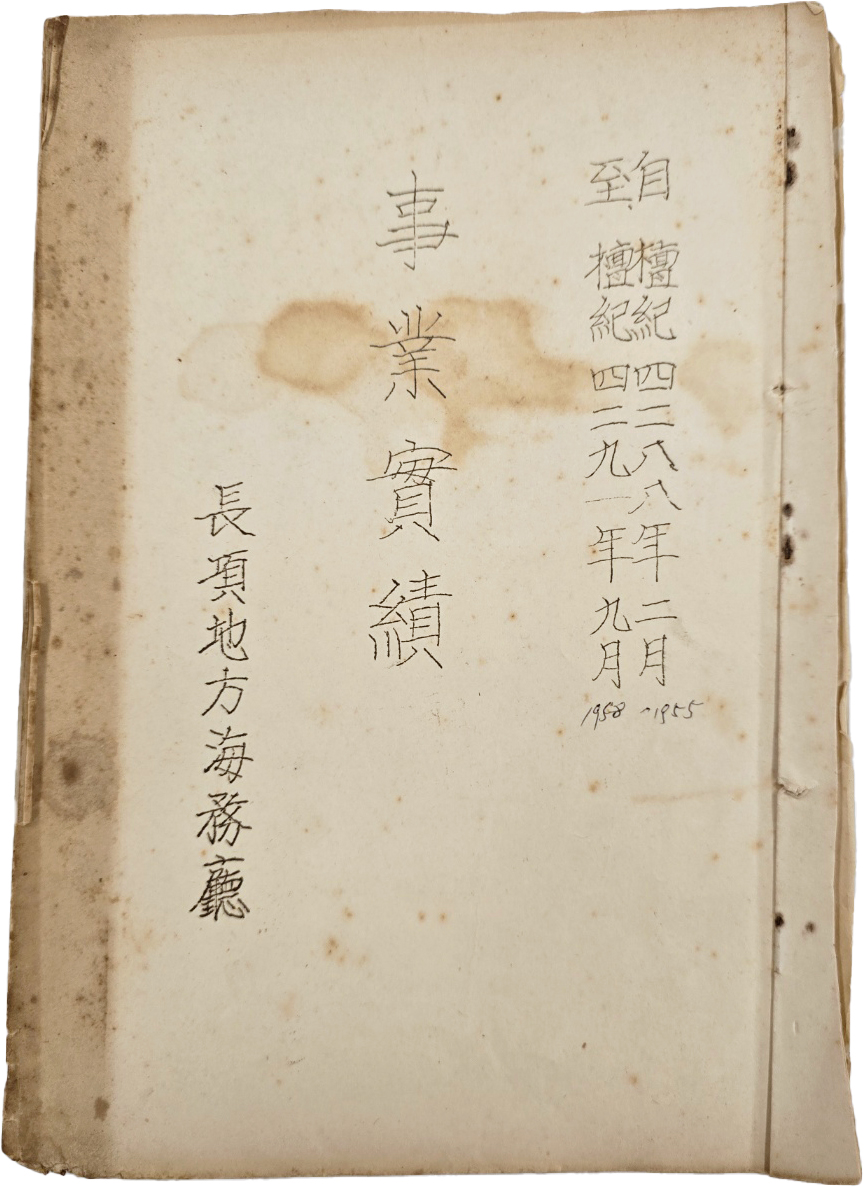 自 檀紀四二八八年二月
至 檀紀四二九一年九月
1958 ~1955
事業實績
長項地方海務廳